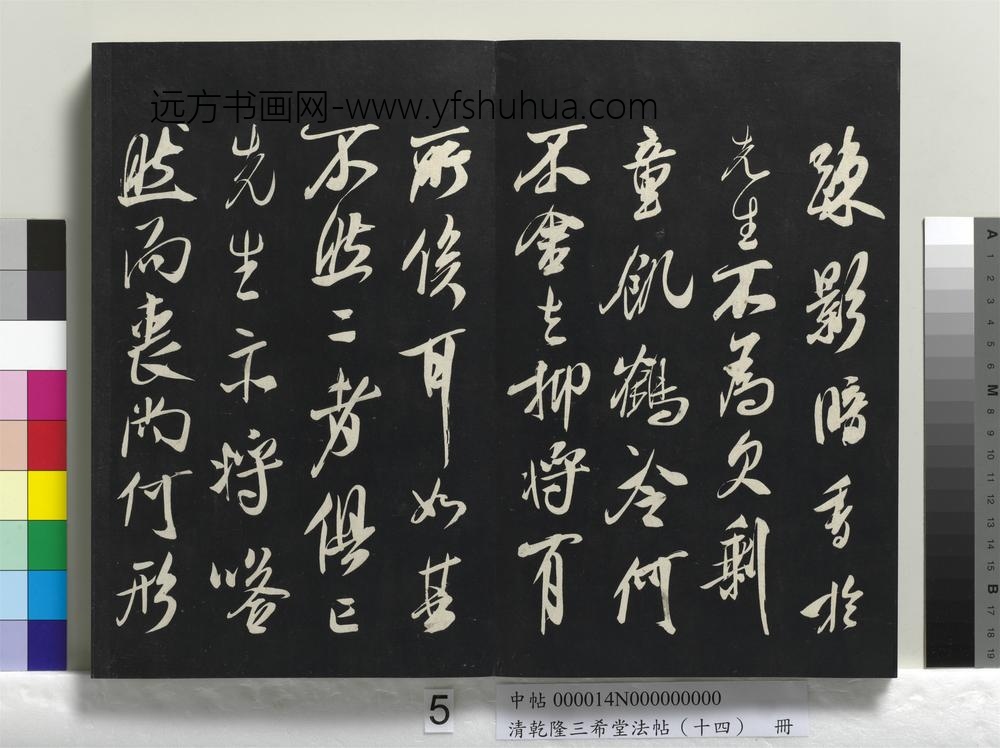 远方书画网-www.yfshuhua.com
疎影暗香於
先生不為欠剩
童飢鶴冷何
不舍去抑將有
所俟耳如其
不然二者俱亡
先生亦將嗒
然而喪尚何形
5
中帖 000014N000000000
清乾隆三希堂法帖（十四） 冊
A
1
2
3
4
5
6
M
8
9
10
11
12
13
14
15
B
17
18
19